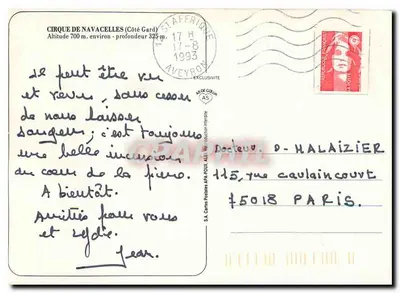 CIRQUE DE NAVACELLES (Côté Gard)
Altitude 700 m. environ - profondeur 325 m.
12 ST AFFRIQUE
17 H
17-8
1993
AVEYRON
EXCLUSIVITE
AS DE CŒUR
AS
Il peut être vu
et revu, sans cesser
de nous laisser
songeurs; c'est toujours
une belle incursion
au cœur de la pierre.
A bientôt.
Amitiés pour vous
et Lydie.
Jean.
Docteur D- HALAIZIER
115, rue caulaincourt
75018 PARIS.